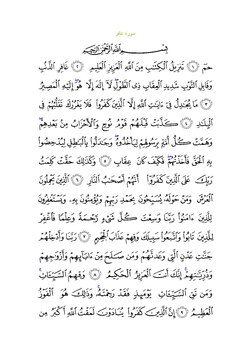 سورة غافر
بِسْمِ اللَّهِ الرَّحْمَٰنِ الرَّحِيمِ
حمٓ ١ تَنزِيلُ الْكِتَابِ مِنَ اللَّهِ الْعَزِيزِ الْعَلِيمِ ٢ غَافِرِ الذَّنْبِ
وَقَابِلِ التَّوْبِ شَدِيدِ الْعِقَابِ ذِى الطَّوْلِ لَا إِلَٰهَ إِلَّا هُوَ إِلَيْهِ الْمَصِيرُ
٣ مَا يُجَادِلُ فِىٓ ءَايَاتِ اللَّهِ إِلَّا الَّذِينَ كَفَرُوا۟ فَلَا يَغْرُرْكَ تَقَلُّبُهُمْ فِى
الْبِلَادِ ٤ كَذَّبَتْ قَبْلَهُمْ قَوْمُ نُوحٍ وَالْأَحْزَابُ مِنۢ بَعْدِهِمْ
وَهَمَّتْ كُلُّ أُمَّةٍۭ بِرَسُولِهِمْ لِيَأْخُذُوهُ وَجَادَلُوا۟ بِالْبَاطِلِ لِيُدْحِضُوا۟
بِهِ الْحَقَّ فَأَخَذْتُهُمْ فَكَيْفَ كَانَ عِقَابِ ٥ وَكَذَٰلِكَ حَقَّتْ كَلِمَتُ
رَبِّكَ عَلَى الَّذِينَ كَفَرُوٓا۟ أَنَّهُمْ أَصْحَابُ النَّارِ ٦ الَّذِينَ يَحْمِلُونَ
الْعَرْشَ وَمَنْ حَوْلَهُۥ يُسَبِّحُونَ بِحَمْدِ رَبِّهِمْ وَيُؤْمِنُونَ بِهِۦ وَيَسْتَغْفِرُونَ
لِلَّذِينَ ءَامَنُوا۟ رَبَّنَا وَسِعْتَ كُلَّ شَىْءٍ رَّحْمَةً وَعِلْمًا فَاغْفِرْ
لِلَّذِينَ تَابُوا۟ وَاتَّبَعُوا۟ سَبِيلَكَ وَقِهِمْ عَذَابَ الْجَحِيمِ ٧ رَبَّنَا وَأَدْخِلْهُمْ
جَنَّاتِ عَدْنٍ الَّتِى وَعَدتَّهُمْ وَمَن صَلَحَ مِنْ ءَابَآئِهِمْ وَأَزْوَاجِهِمْ
وَذُرِّيَّاتِهِمْ إِنَّكَ أَنتَ الْعَزِيزُ الْحَكِيمُ ٨ وَقِهِمُ السَّيِّـَٔاتِ
وَمَن تَقِ السَّيِّـَٔاتِ يَوْمَئِذٍ فَقَدْ رَحِمْتَهُۥ وَذَٰلِكَ هُوَ الْفَوْزُ
الْعَظِيمُ ٩ إِنَّ الَّذِينَ كَفَرُوا۟ يُنَادَوْنَ لَمَقْتُ اللَّهِ أَكْبَرُ مِن